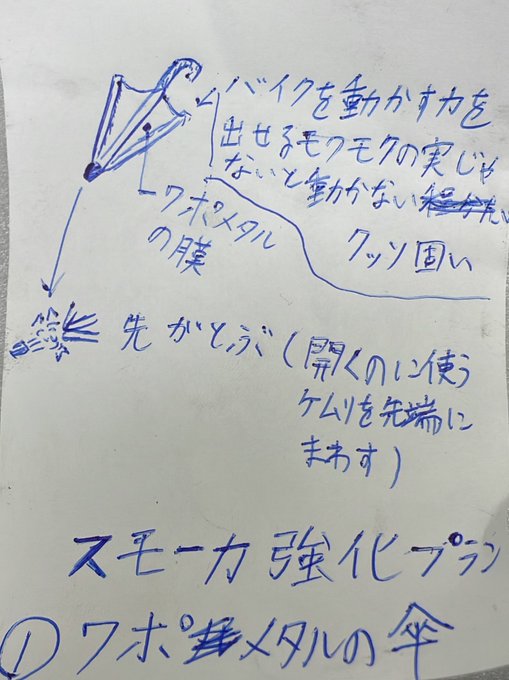 バイクを動かす力を
出せるモクモクの実じゃ
ないと動かない
クッソ固い
ワポメタル
の膜
先がとぶ(開くのに使う
ケムリを先端に
まわす)
スモーカ強化プラン
① ワポメタルの傘